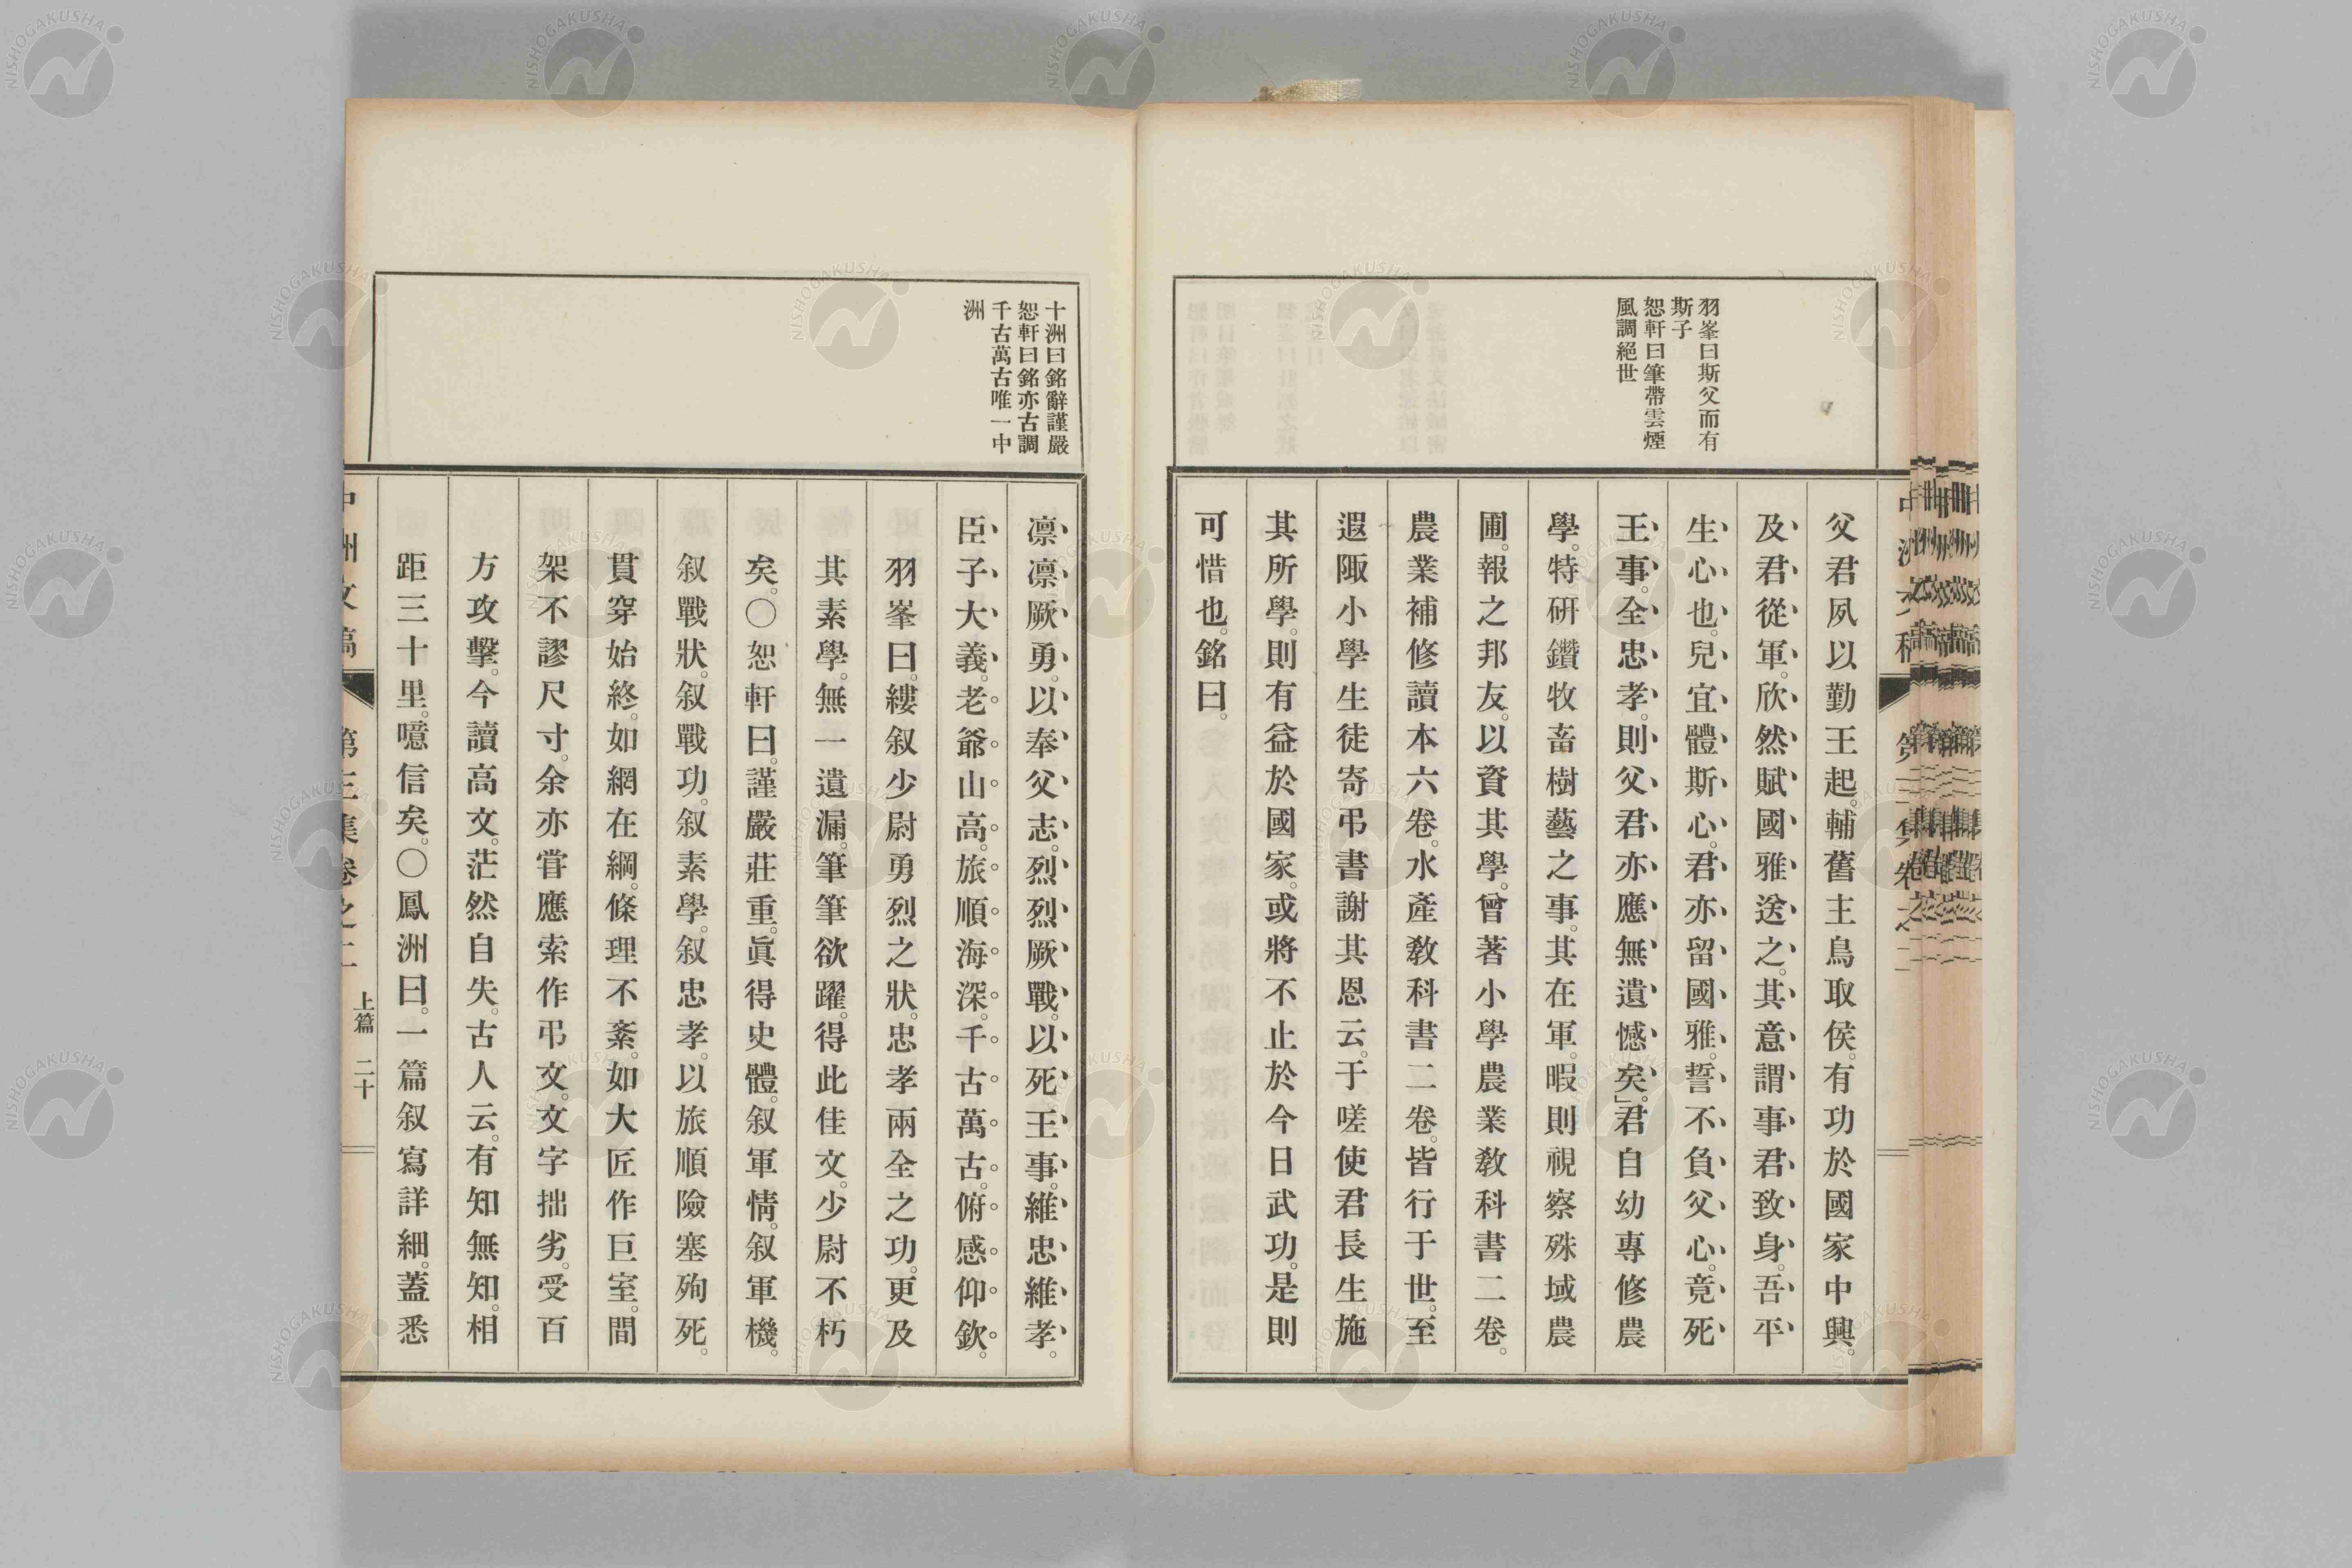 羽峯曰斯父而有
斯子
恕軒曰筆帶雲煙
風調絕世
父君夙以勤王起。輔舊主鳥取侯。有功於國家中興。
及君從軍。欣然賦國雅送之。其意謂事君致身。吾平
生心也。兒宜體斯心。君亦留國雅。誓不負父心。竟死
王事。全忠孝。則父君亦應無遺憾矣。」君自幼專修農
學。特研鑽牧畜樹藝之事。其在軍。暇則視察殊域農
圃。報之邦友。以資其學。曾著小學農業教科書二卷。
農業補修讀本六卷。水產教科書二卷。皆行于世。至
遐陬小學生徒寄弔書謝其恩云。于嗟使君長生施
其所學。則有益於國家。或將不止於今日武功。是則
可惜也。銘曰。
十洲曰銘辭謹嚴
恕軒曰銘亦古調
千古萬古唯一中
洲
凛凛厥勇。以奉父志。烈烈厥戰。以死王事。維忠維孝。
臣子大義。老爺山高。旅順海深。千古萬古。俯感仰欽。
羽峯曰。縷叙少尉勇烈之狀。忠孝兩全之功。更及
其素學。無一遺漏。筆筆欲躍。得此佳文。少尉不朽
矣。○恕軒曰。謹嚴莊重。眞得史體。叙軍情。叙軍機。
叙戰狀。叙戰功。叙素學。叙忠孝。以旅順險塞殉死。
貫穿始終。如網在綱。條理不紊。如大匠作巨室。間
架不謬尺寸。余亦嘗應索作弔文。文字拙劣。受百
方攻擊。今讀高文。茫然自失。古人云。有知無知。相
距三十里。噫信矣。○鳳洲曰。一篇叙寫詳細。蓋悉
中洲文稿 第三集卷之二 上篇 二十